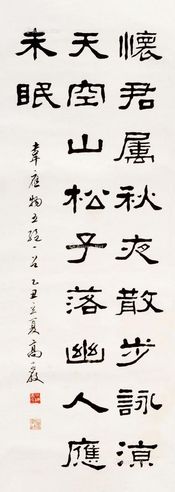 懷君属秋夜散步詠涼
天空山松子落幽人應
未眠
韋應物五絕一首乙丑之夏高嚴